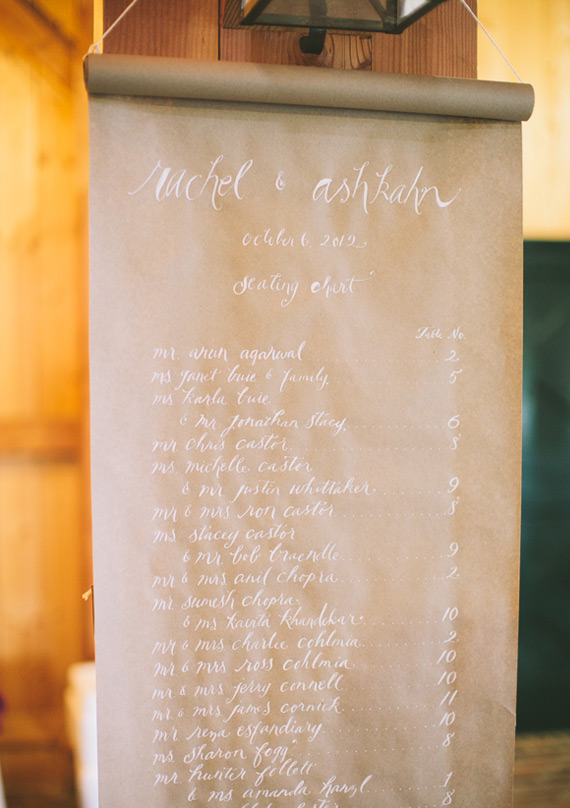 rachel & ashkahn
october 6, 2012
seating chart
Table No.
mr. arun agarwal 2
ms janet buie & family 5
ms karla buie
& mr jonathan stacy 6
mr chris castor 8
ms. michelle castor
& mr justin whittaker 9
mr & mrs ron castor 8
ms stacey castor
& mr bob braendle 9
mr & mrs anil chopra 2
mr sumesh chopra
& ms kavita khandekar 10
mr & mrs charlie cohlmia 2
mr & mrs ross cohlmia 10
mr & mrs jerry connell 10
mr & mrs james cornick 11
mr reza esfandiary 10
ms sharon fogg 8
mr. hunter follett
& ms amanda hangl 1
8